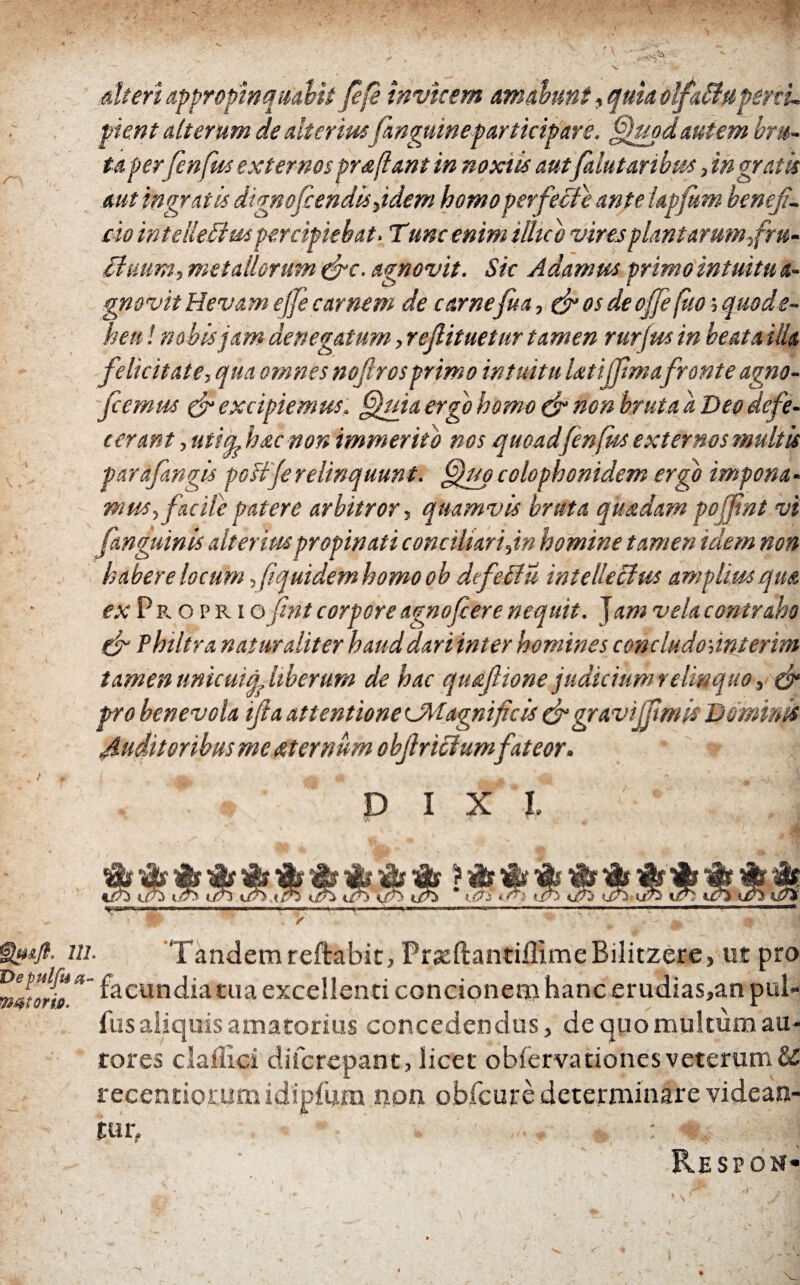 alteri appropinquabit ſeſe invicem amabunt, quia olfactu perci-
pient alterum de alterius ſanguine participare. Quod autem bru-
ta per ſenſus externos præſtant in noxiis aut ſalutaribus, in gratis
aut ingratis dignoſcendis, idem homo perfectè ante lapſum benefi-
cio intellectus percipiebat. Tunc enim illicò vires plantarum, fru-
ctuum, metallorum &c. agnovit. Sic Adamus primo intuitu a-
gnovit Hevam eſſe carnem de carne ſua, & os de oſſe ſuo; quod e-
heu! nobis jam denegatum, reſtituetur tamen rurſus in beata illa
felicitate, qua omnes noſtros primo intuitu lætiſſima fronte agno-
ſcemus & excipiemus. Quia ergò homo & non bruta à Deo defe-
cerant, utiq́ hæc non immeritò nos quoad ſenſus externos multis
paraſangis poſt ſe relinquunt. Quo colophonidem ergò impona-
mus, facilè patere arbitror, quamvis bruta quædam poſſint vi
ſanguinis alterius propinati conciliari, in homine tamen idem non
habere locum, ſiquidem homo ob defectũ intellectus amplius quæ
ex PROPRIO ſint corpore agnoſcere nequit. Jam vela contraho
& Philtra naturaliter haud dari inter homines concludo; interim
tamen unicuiq́ liberum de hac quæſtione judicium relinquo, &
pro benevola iſta attentione Magnificis & graviſſimis Dominis
Auditoribus me æternùm obſtrictum fateor.
DIXI.
Quæſt. III.
De pulſu a-
matorio.
Tandem reſtabit, Præſtantiſſime Bilitzere, ut pro
facundia tua excellenti concionem hanc erudias, an pul-
ſus aliquis amatorius concedendus, de quo multùm au-
tores claſſici diſcrepant, licet obſervationes veterum &
recentiorum idipſum non obſcurè determinare videan-
tur.
RESPON-